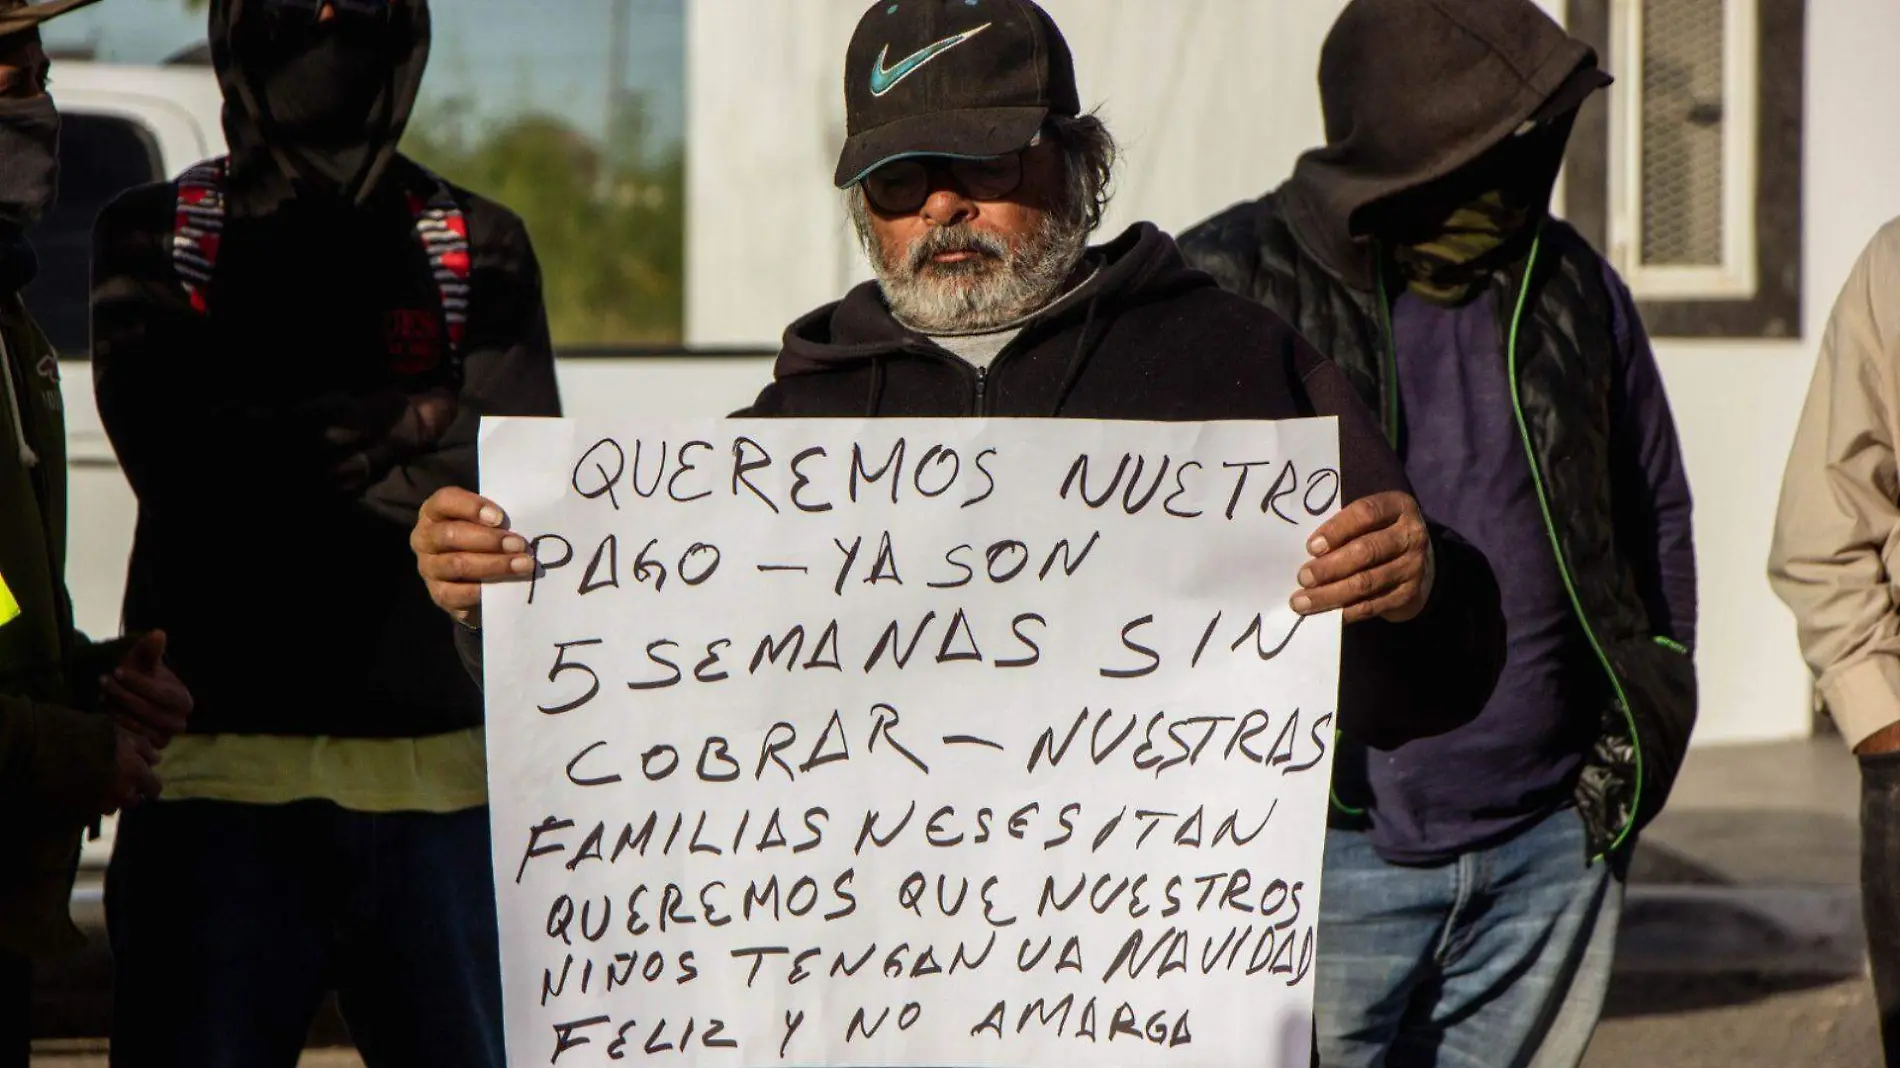 QUEREMOS NUETRO
PAGO - YA SON
5 SEMANAS SIN
COBRAR - NUESTRAS
FAMILIAS NESESITAN
QUEREMOS QUE NUESTROS
NIÑOS TENGAN UA NAVIDAD
FELIZ Y NO AMARGA